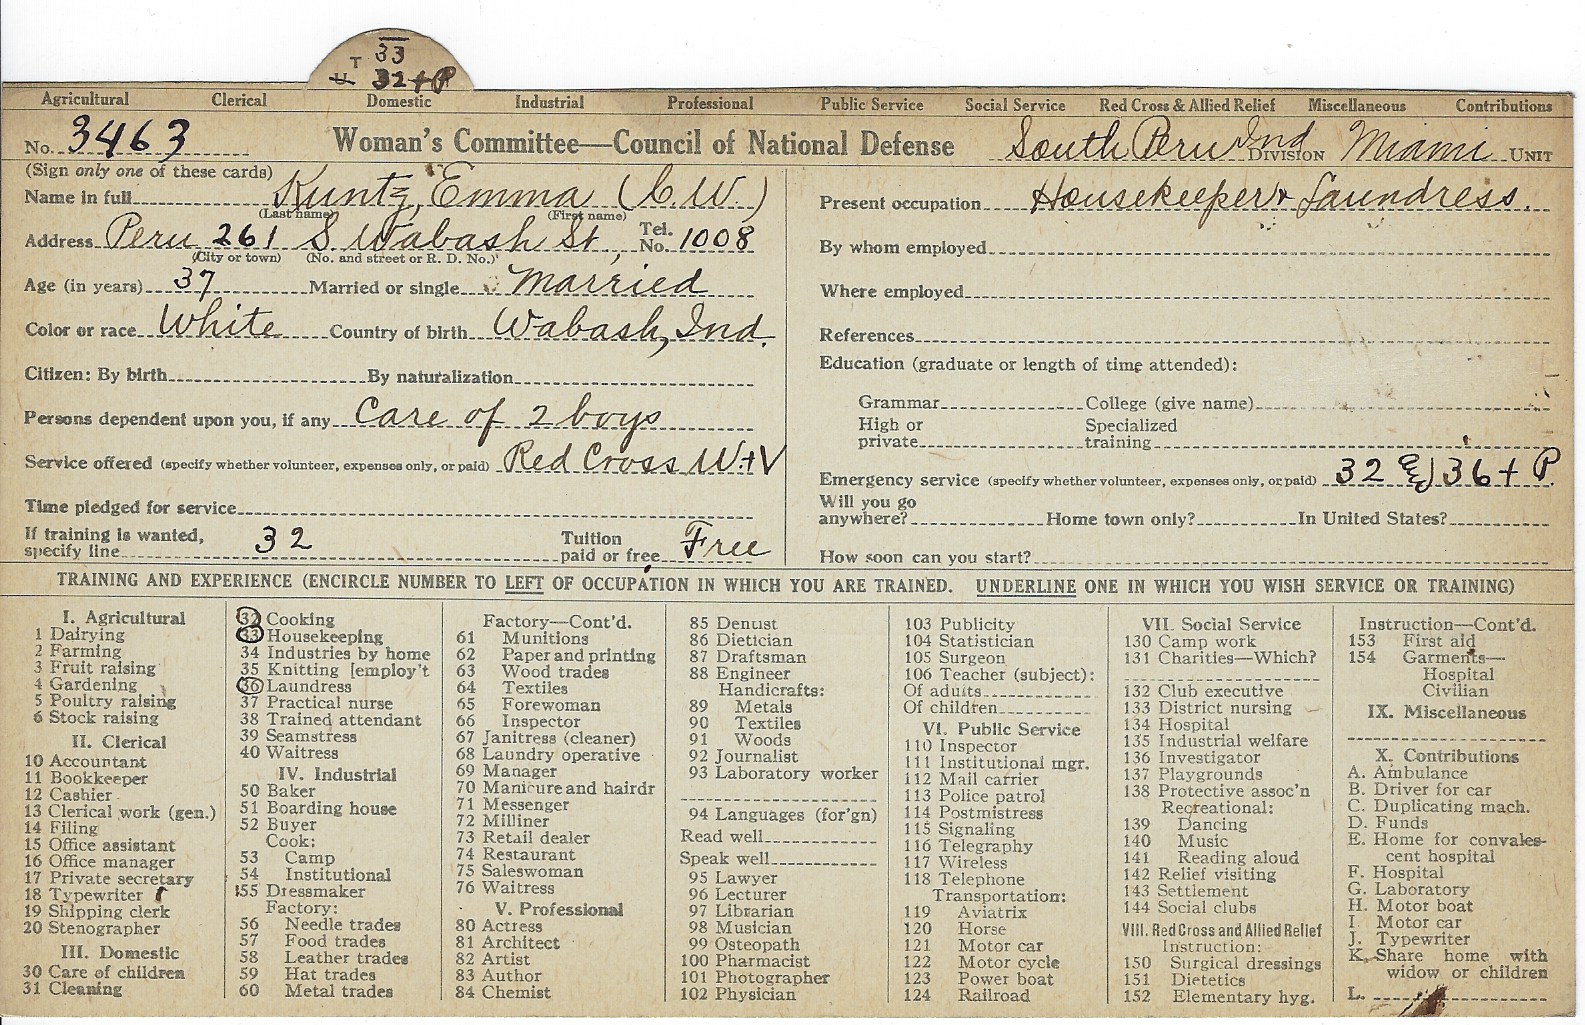 33
T
U 32+P
Agricultural Clerical Domestic Industrial Professional Public Service Social Service Red Cross & Allied Relief Miscellaneous Contributions
No. 3463 Woman's Committee—Council of National Defense South Peru Ind DIVISION Miami UNIT
(Sign only one of these cards)
Name in full Kuntz, Emma (C.W.)
(Last name) (First name)
Address Peru 261 S. Wabash St, Tel. No. 1008
(City or town) (No. and street or R. D. No.)
Age (in years) 37 Married or single Married
Color or race White Country of birth Wabash, Ind.
Citizen: By birth By naturalization
Persons dependent upon you, if any Care of 2 boys
Service offered (specify whether volunteer, expenses only, or paid) Red Cross W.+V
Time pledged for service
If training is wanted, specify line 32 Tuition paid or free Free
Present occupation Housekeeper + Laundress.
By whom employed
Where employed
References
Education (graduate or length of time attended):
Grammar College (give name)
High or private Specialized training
Emergency service (specify whether volunteer, expenses only, or paid) 32 & 36 + P.
Will you go anywhere? Home town only? In United States?
How soon can you start?
TRAINING AND EXPERIENCE (ENCIRCLE NUMBER TO LEFT OF OCCUPATION IN WHICH YOU ARE TRAINED. UNDERLINE ONE IN WHICH YOU WISH SERVICE OR TRAINING)
I. Agricultural
1 Dairying
2 Farming
3 Fruit raising
4 Gardening
5 Poultry raising
6 Stock raising
II. Clerical
10 Accountant
11 Bookkeeper
12 Cashier
13 Clerical work (gen.)
14 Filing
15 Office assistant
16 Office manager
17 Private secretary
18 Typewriter
19 Shipping clerk
20 Stenographer
III. Domestic
30 Care of children
31 Cleaning
32 Cooking
33 Housekeeping
34 Industries by home
35 Knitting [employ't
36 Laundress
37 Practical nurse
38 Trained attendant
39 Seamstress
40 Waitress
IV. Industrial
50 Baker
51 Boarding house
52 Buyer
Cook:
53 Camp
54 Institutional
55 Dressmaker
Factory:
56 Needle trades
57 Food trades
58 Leather trades
59 Hat trades
60 Metal trades
Factory—Cont'd.
61 Munitions
62 Paper and printing
63 Wood trades
64 Textiles
65 Forewoman
66 Inspector
67 Janitress (cleaner)
68 Laundry operative
69 Manager
70 Manicure and hairdr
71 Messenger
72 Milliner
73 Retail dealer
74 Restaurant
75 Saleswoman
76 Waitress
V. Professional
80 Actress
81 Architect
82 Artist
83 Author
84 Chemist
85 Dentist
86 Dietician
87 Draftsman
88 Engineer
Handicrafts:
89 Metals
90 Textiles
91 Woods
92 Journalist
93 Laboratory worker
94 Languages (for'gn)
Read well
Speak well
95 Lawyer
96 Lecturer
97 Librarian
98 Musician
99 Osteopath
100 Pharmacist
101 Photographer
102 Physician
103 Publicity
104 Statistician
105 Surgeon
106 Teacher (subject):
Of adults
Of children
VI. Public Service
110 Inspector
111 Institutional mgr.
112 Mail carrier
113 Police patrol
114 Postmistress
115 Signaling
116 Telegraphy
117 Wireless
118 Telephone
Transportation:
119 Aviatrix
120 Horse
121 Motor car
122 Motor cycle
123 Power boat
124 Railroad
VII. Social Service
130 Camp work
131 Charities—Which?
132 Club executive
133 District nursing
134 Hospital
135 Industrial welfare
136 Investigator
137 Playgrounds
138 Protective assoc'n
Recreational:
139 Dancing
140 Music
141 Reading aloud
142 Relief visiting
143 Settlement
144 Social clubs
VIII. Red Cross and Allied Relief
Instruction:
150 Surgical dressings
151 Dietetics
152 Elementary hyg.
Instruction—Cont'd.
153 First aid
154 Garments—
Hospital
Civilian
IX. Miscellaneous
X. Contributions
A. Ambulance
B. Driver for car
C. Duplicating mach.
D. Funds
E. Home for convales-
cent hospital
F. Hospital
G. Laboratory
H. Motor boat
I. Motor car
J. Typewriter
K. Share home with
widow or children
L.